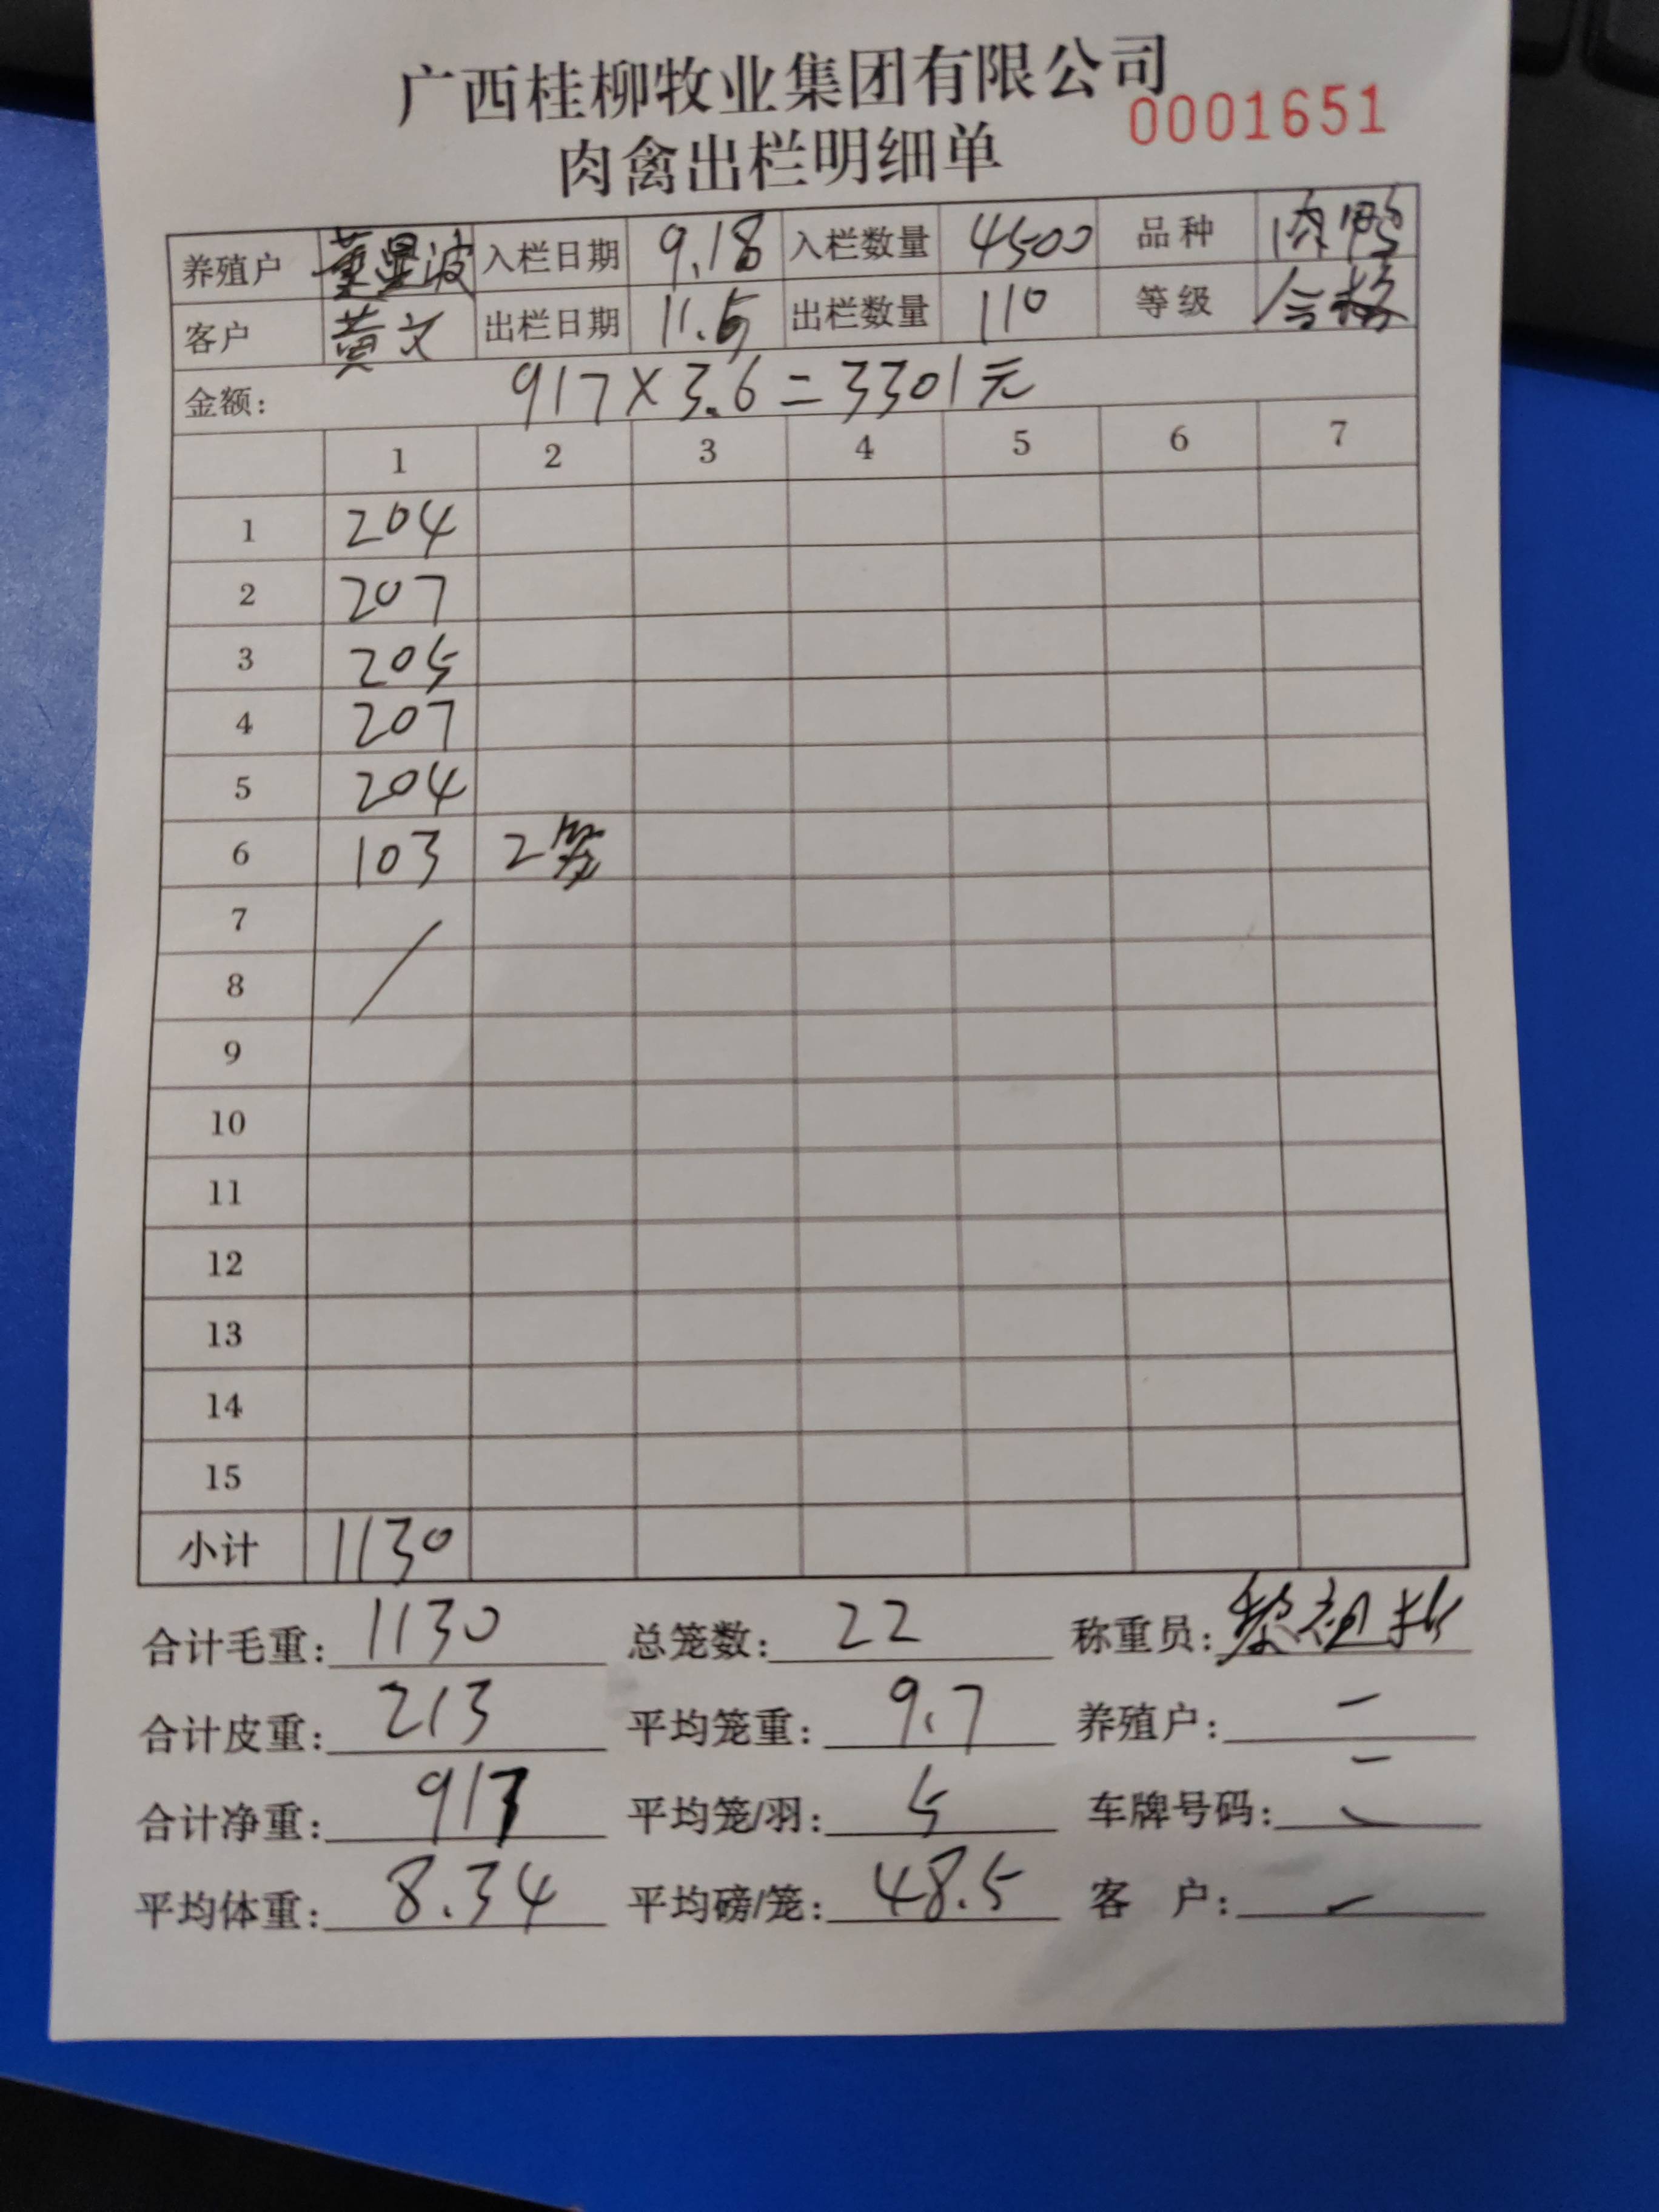 广西桂柳牧业集团有限公司
0001651
肉禽出栏明细单
养殖户 董显波 入栏日期 9.18 入栏数量 4500 品种 肉鸭
客户 黄文 出栏日期 11.5 出栏数量 110 等级 合格
金额: 917×3.6=3301元
1 2 3 4 5 6 7
1 204
2 207
3 205
4 207
5 204
6 103 2笼
7
8
9
10
11
12
13
14
15
小计 1130
合计毛重: 1130 总笼数: 22 称重员: 黎祖
合计皮重: 213 平均笼重: 9.7 养殖户: 一
合计净重: 917 平均笼/羽: 5 车牌号码:
平均体重: 8.34 平均磅/笼: 48.5 客 户: